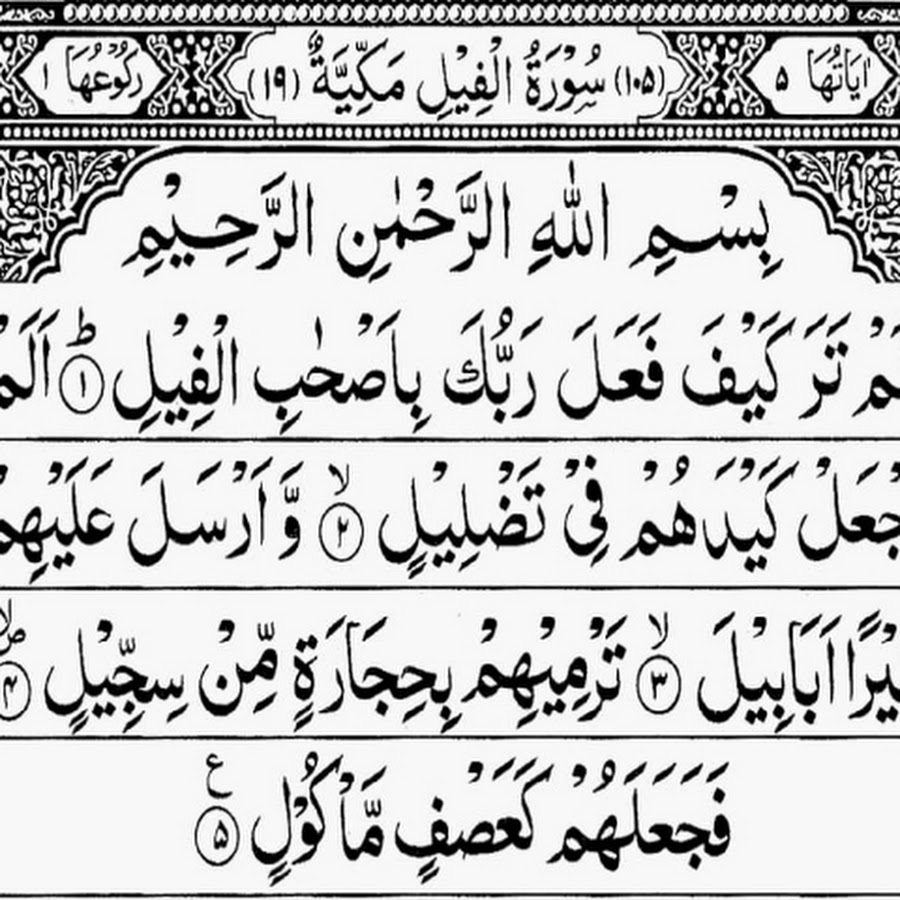 اٰيَاتُهَا ٥ (١٠٥) سُوْرَةُ الْفِيْلِ مَكِّيَّةٌ (١٩) رُكُوْعُهَا ١
بِسْمِ اللّٰهِ الرَّحْمٰنِ الرَّحِيْمِ
تَرَ كَيْفَ فَعَلَ رَبُّكَ بِاَصْحٰبِ الْفِيْلِ ؕ ۱
كَيْدَهُمْ فِيْ تَضْلِيْلٍ ۙ ۲ وَّ اَرْسَلَ عَلَيْهِمْ
اَبَابِيْلَ ۙ ۳ تَرْمِيْهِمْ بِحِجَارَةٍ مِّنْ سِجِّيْلٍ ۴
فَجَعَلَهُمْ كَعَصْفٍ مَّاْكُوْلٍ ۵ ع